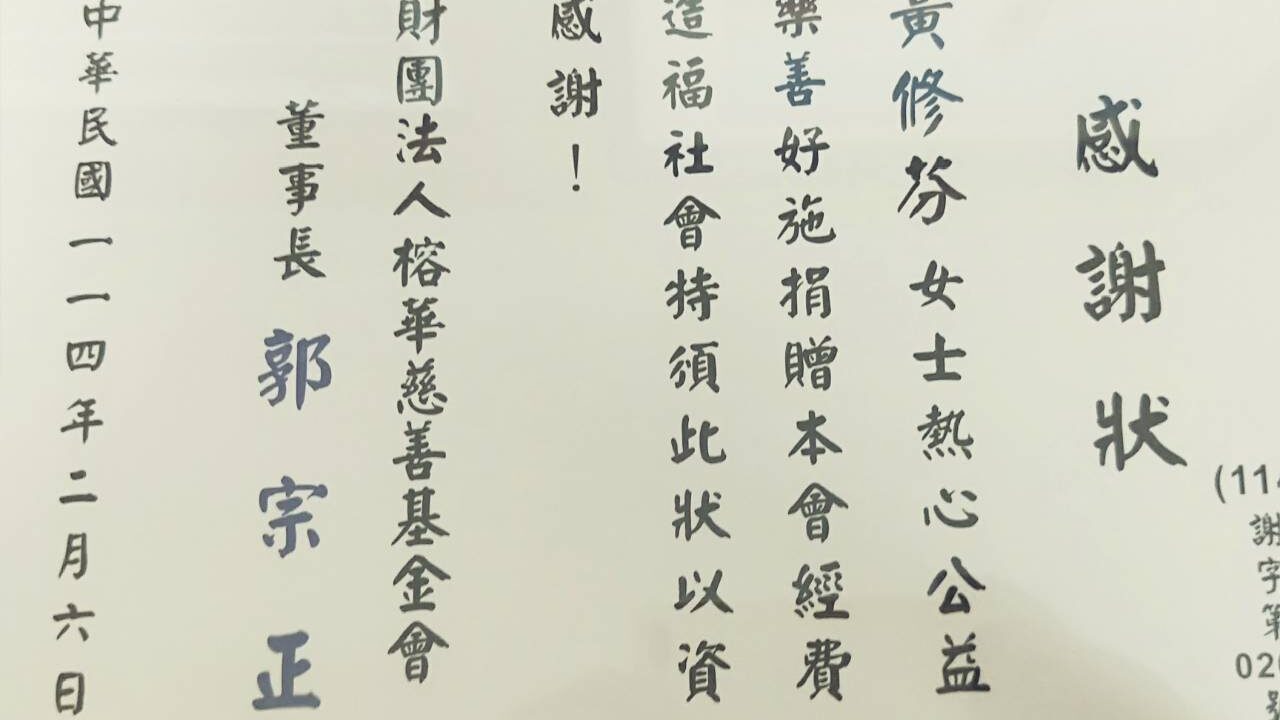 感謝狀
黃修芬女士熱心公益
樂善好施捐贈本會經費
造福社會特頒此狀以資
感謝！
財團法人榕華慈善基金會
董事長 郭宗正
中華民國一一四年二月六日